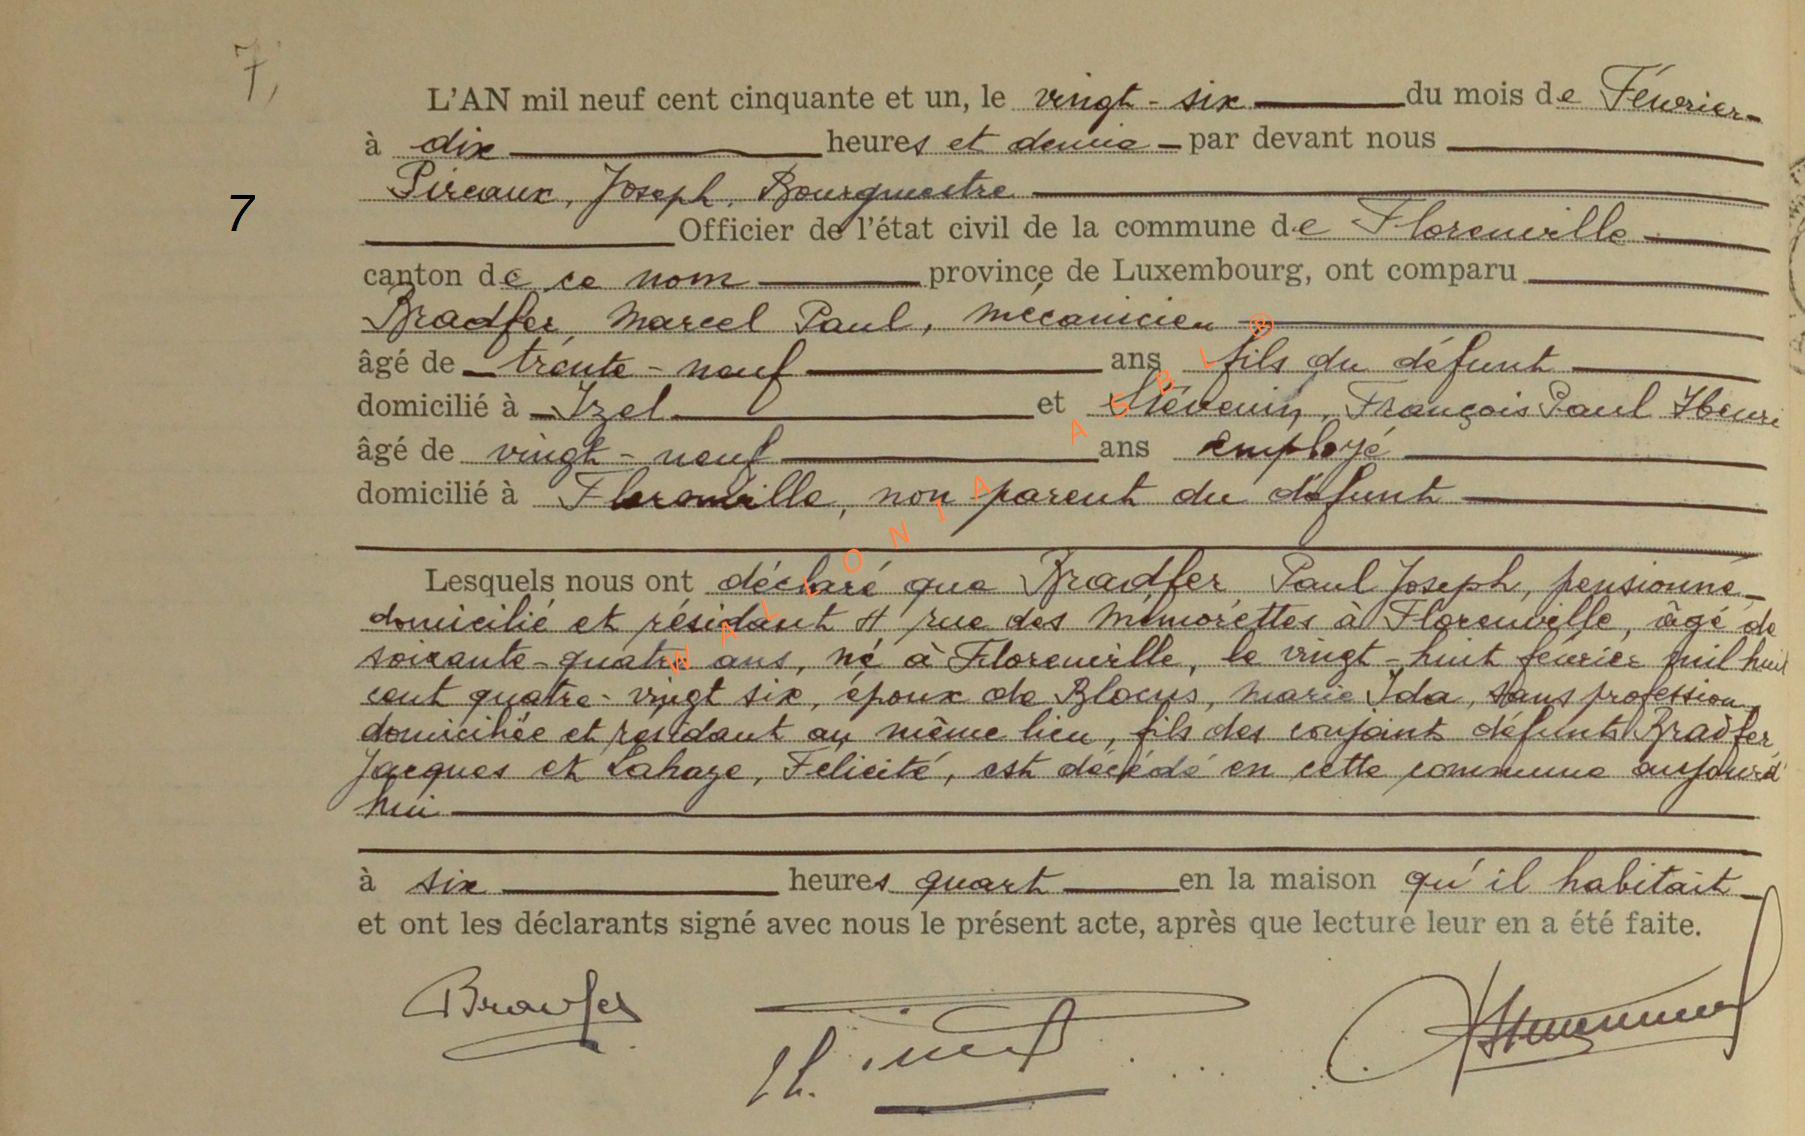 7,
L'AN mil neuf cent cinquante et un, le vingt-six du mois de Février
à dix heures et demie par devant nous
Pireaux, Joseph, Bourgmestre
7
Officier de l'état civil de la commune de Florenville
canton de ce nom province de Luxembourg, ont comparu
Bradfer, Marcel Paul, mécanicien
âgé de trente-neuf ans fils du défunt
domicilié à Izel et Stévenin, François Paul Henri
âgé de vingt-neuf ans employé
domicilié à Florenville, non parent du défunt
Lesquels nous ont déclaré que Bradfer Paul Joseph, pensionné
domicilié et résidant 4 rue des Mémorettes à Florenville, âgé de
soixante-quatre ans, né à Florenville, le vingt-huit février mil huit
cent quatre-vingt six, époux de Blocus, Marie Ida, sans profession,
domiciliée et résidant au même lieu, fils des conjoint défunts Bradfer,
Jacques et Lahaye, Félicité, est décédé en cette commune aujourd'
hui
à six heures quart en la maison qu'il habitait
et ont les déclarants signé avec nous le présent acte, après que lecture leur en a été faite.
Bradfer
WALLONIA ASBL ®